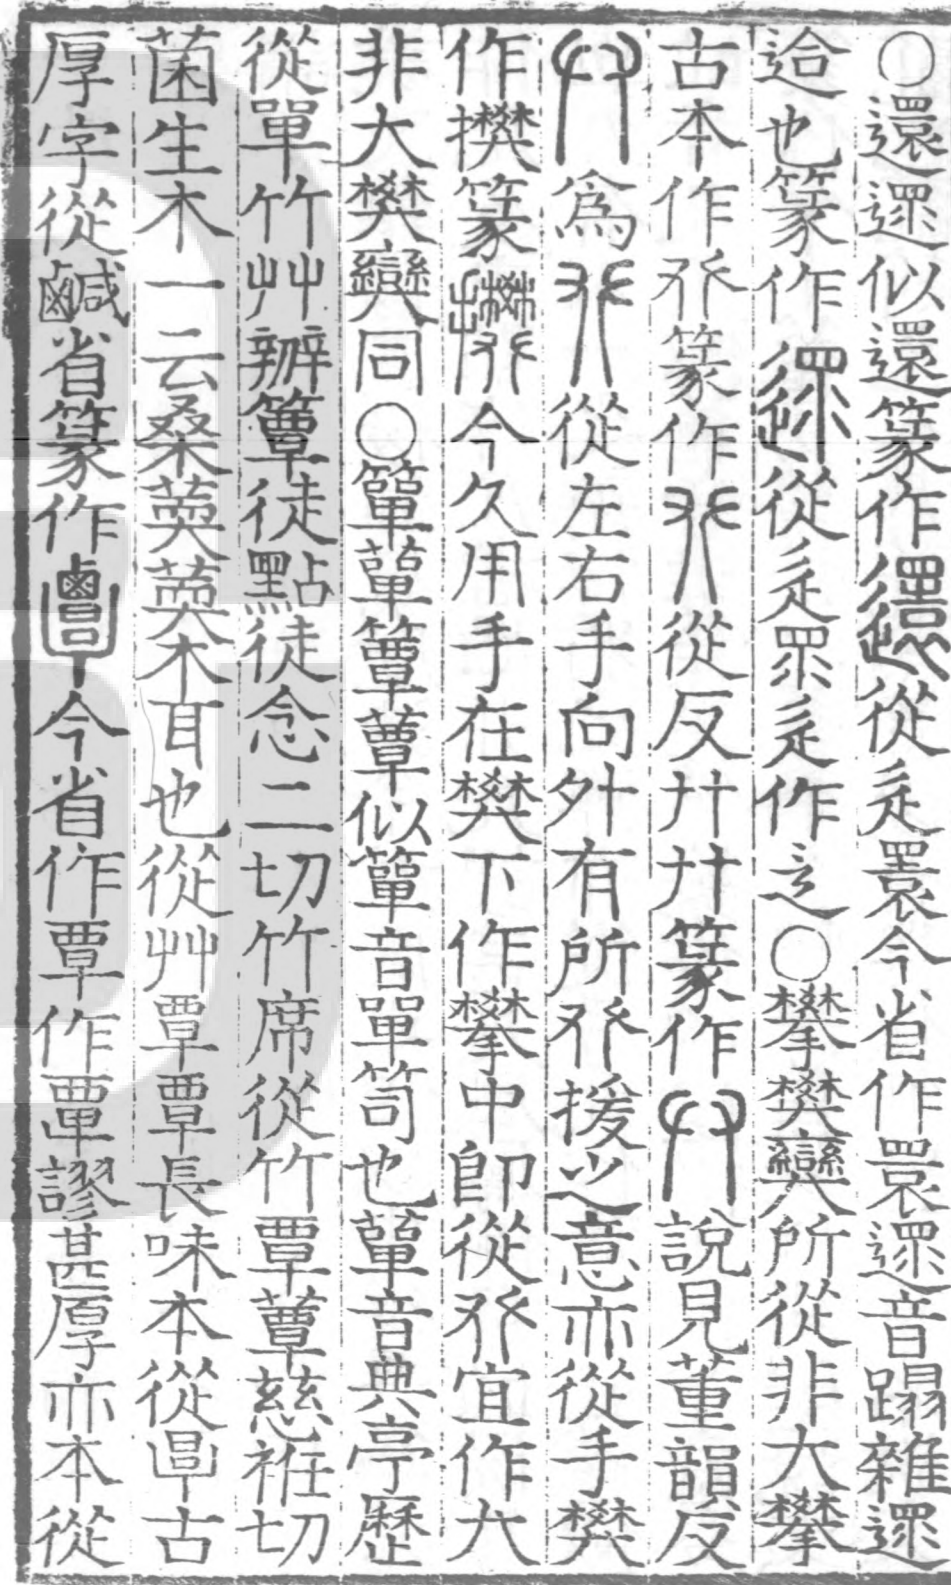 ○還遝似還篆作從辵睘今省作睘遝音蹋雜遝
迨也篆作從辵眔辵作⻌○攀樊䜌所從非大攀
古本作𠬜篆作從反廾廾篆作說見董韻反
爲從左右手向外有所𠬜援之意亦從手樊
作㩥篆今久用手在樊下作攀中卽從𠬜宜作六
非大樊同○簞蕇簟蕈似簞音單笥也蕇音典亭歷
從單竹艸辦簟徒點徒念二切竹席從竹覃蕈慈袵切
菌生木一云桑葽葽木耳也從艸覃覃長味本從㫗古
厚字從鹹省篆作今省作覃作覀謬甚厚亦本從